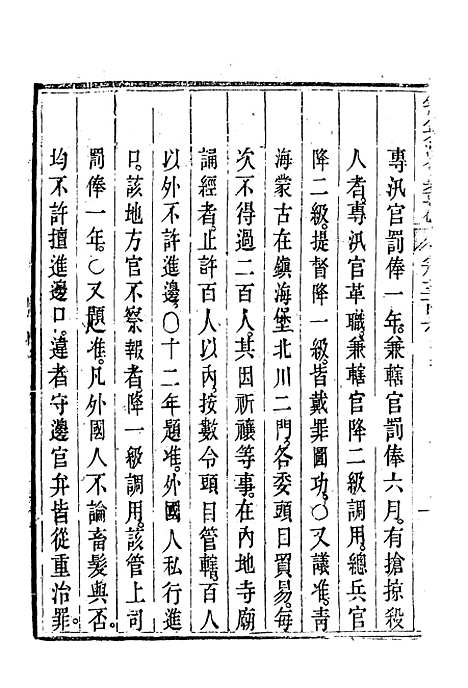 專汛官罰俸一年。兼轄官罰俸六月。有搶掠殺
人者。專汛官革職。兼轄官降二級調用。總兵官
降二級。提督降一級。皆戴罪圖功。〇又議准。靑
海蒙古在鎭海堡北川二門。各委頭目貿易。每
次不得過二百人。其因祈禳等事。在內地寺廟
誦經者。止許百人以內。按數令頭目管轄。百人
以外不許進邊。〇十二年題准。外國人私行進
口。該地方官不察報者。降一級調用。該管上司
罰俸一年。〇又題准。凡外國人不論畜髮與否。
均不許擅進邊口。違者守邊官弁皆從重治罪。